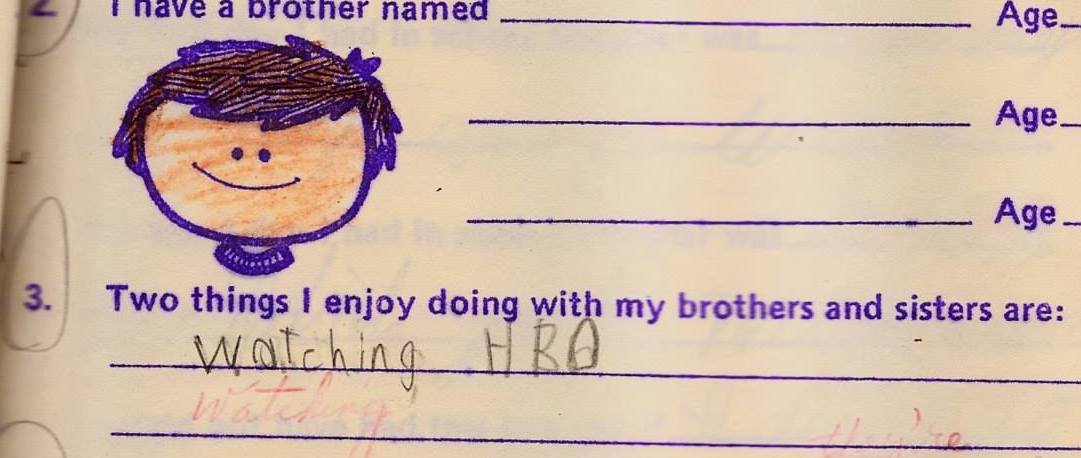 2 I have a brother named Age
Age
Age
3. Two things I enjoy doing with my brothers and sisters are:
watching HBO
Watching
they're